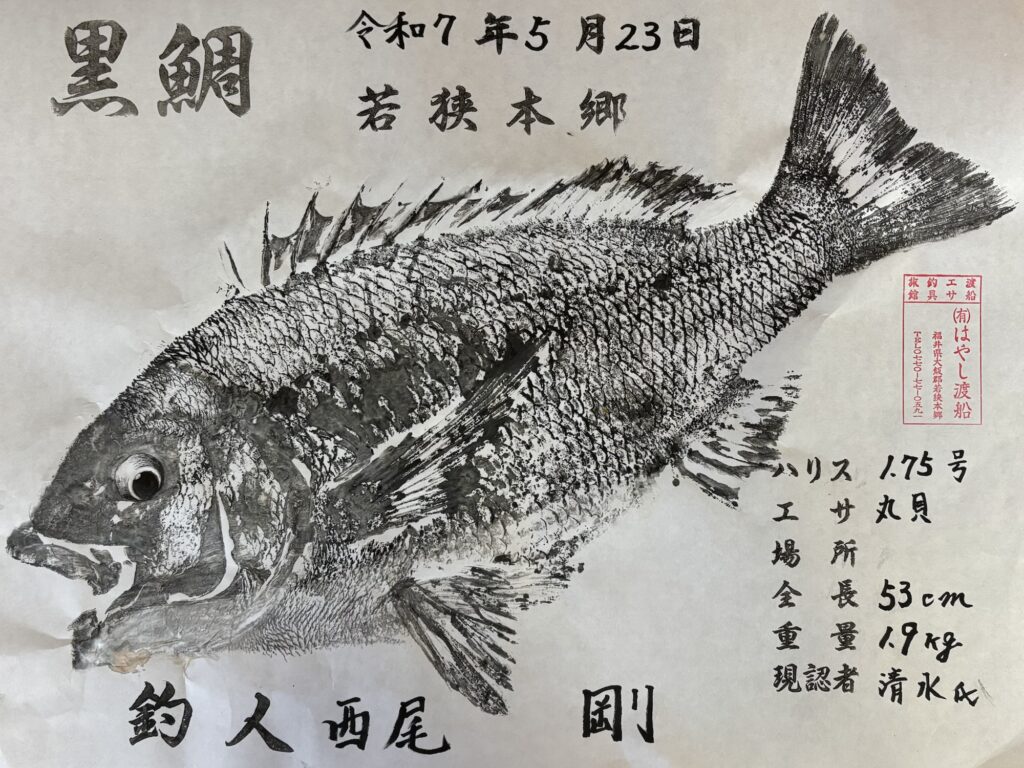 黒鯛
令和7年5月23日
若狭本郷
渡船 エサ 釣具 旅館
㈲はやし渡船
福井県大飯郡若狭本郷
TEL〇七七〇-七七-〇五九一
ハリス 1.75号
エサ 丸貝
場所
全長 53cm
重量 1.9kg
現認者 清水氏
釣人 西尾 剛